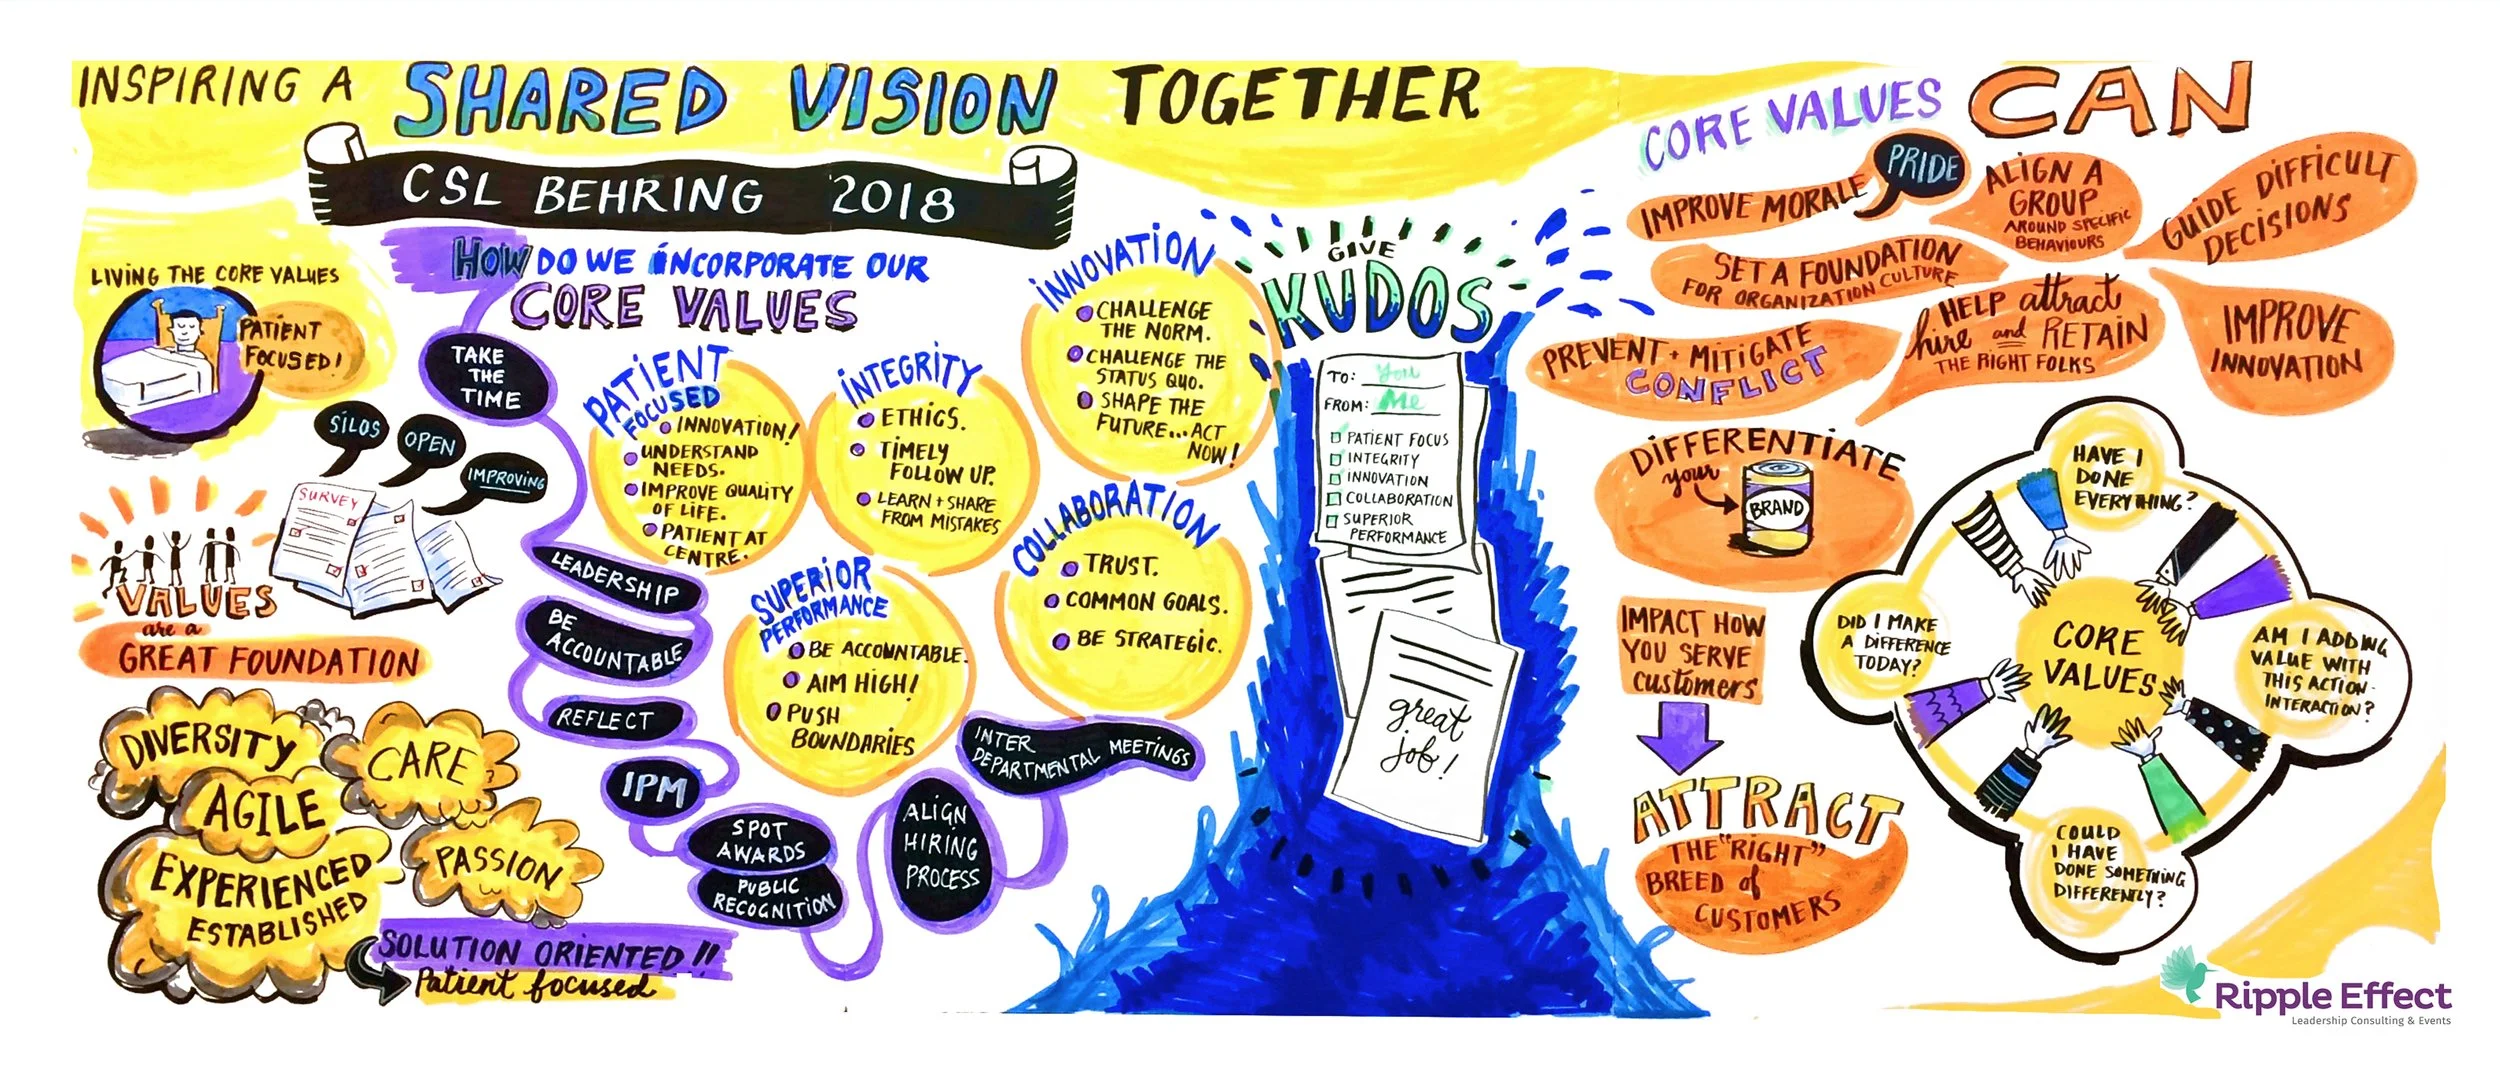 INSPIRING A SHARED VISION TOGETHER
CSL BEHRING 2018
LIVING THE CORE VALUES
PATIENT
FOCUSED!
SILOS
OPEN
IMPROVING
SURVEY
VALUES
are a
GREAT FOUNDATION
DIVERSITY
CARE
AGILE
PASSION
EXPERIENCED
ESTABLISHED
SOLUTION ORIENTED!!
Patient focused
HOW DO WE INCORPORATE OUR
CORE VALUES
TAKE
THE
TIME
LEADERSHIP
BE
ACCOUNTABLE
REFLECT
IPM
SPOT
AWARDS
PUBLIC
RECOGNITION
ALIGN
HIRING
PROCESS
INTER
DEPARTMENTAL MEETINGS
PATIENT
FOCUSED
INNOVATION!
UNDERSTAND
NEEDS.
IMPROVE QUALITY
OF LIFE.
PATIENT AT
CENTRE.
INTEGRITY
ETHICS.
TIMELY
FOLLOW UP.
LEARN + SHARE
FROM MISTAKES
SUPERIOR
PERFORMANCE
BE ACCOUNTABLE.
AIM HIGH!
PUSH
BOUNDARIES
INNOVATION
CHALLENGE
THE NORM.
CHALLENGE THE
STATUS QUO.
SHAPE THE
FUTURE...ACT
NOW!
COLLABORATION
TRUST.
COMMON GOALS.
BE STRATEGIC.
GIVE
KUDOS
TO: You
FROM: Me
PATIENT FOCUS
INTEGRITY
INNOVATION
COLLABORATION
SUPERIOR
PERFORMANCE
great
job!
CORE VALUES CAN
IMPROVE MORALE
PRIDE
ALIGN A
GROUP
AROUND SPECIFIC
BEHAVIOURS
GUIDE DIFFICULT
DECISIONS
SET A FOUNDATION
FOR ORGANIZATION CULTURE
PREVENT + MITIGATE
CONFLICT
HELP attract
hire and RETAIN
THE RIGHT FOLKS
IMPROVE
INNOVATION
DIFFERENTIATE
your
BRAND
IMPACT HOW
YOU SERVE
customers
ATTRACT
THE "RIGHT"
BREED of
CUSTOMERS
HAVE I
DONE
EVERYTHING?
DID I MAKE
A DIFFERENCE
TODAY?
CORE
VALUES
AM I ADDING
VALUE WITH
THIS ACTION-
INTERACTION?
COULD
I HAVE
DONE SOMETHING
DIFFERENTLY?
Ripple Effect
Leadership Consulting & Events